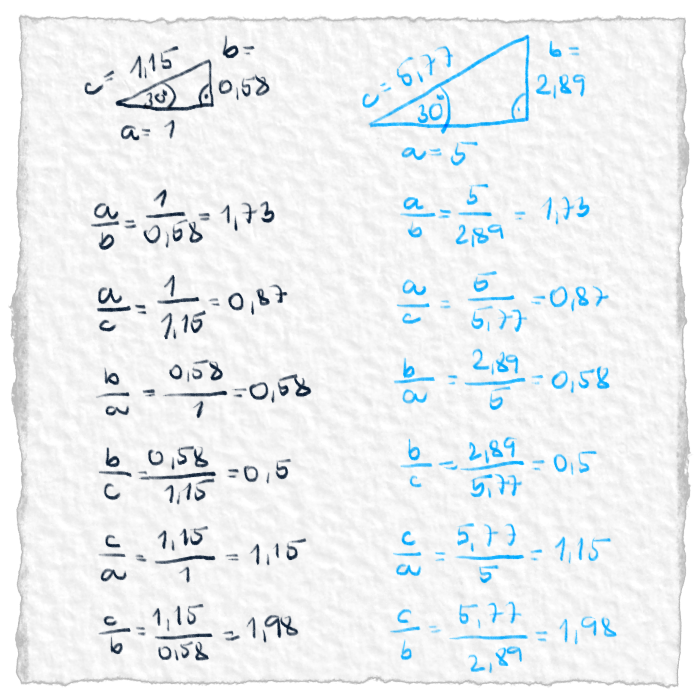 c = 1,15
b =
0,58
30°
a = 1
a/b = 1/0,58 = 1,73
a/c = 1/1,15 = 0,87
b/a = 0,58/1 = 0,58
b/c = 0,58/1,15 = 0,5
c/a = 1,15/1 = 1,15
c/b = 1,15/0,58 = 1,98
c = 5,77
b =
2,89
30°
a = 5
a/b = 5/2,89 = 1,73
a/c = 5/5,77 = 0,87
b/a = 2,89/5 = 0,58
b/c = 2,89/5,77 = 0,5
c/a = 5,77/5 = 1,15
c/b = 5,77/2,89 = 1,98